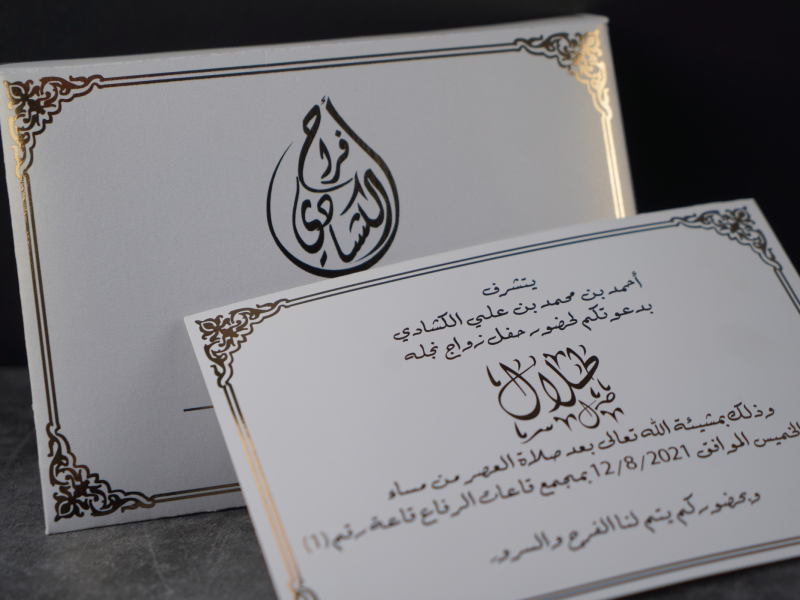 أفراح
الكشادي
يتشرف
أحمد بن محمد بن علي الكشادي
بدعوتكم لحضور حفل زواج نجله
طلال
وذلك بمشيئة الله تعالى بعد صلاة العصر من مساء
الخميس الموافق 12/8/2021 بمجمع قاعات الرفاع قاعة رقم (1)
وبحضوركم يتم لنا الفرح والسرور